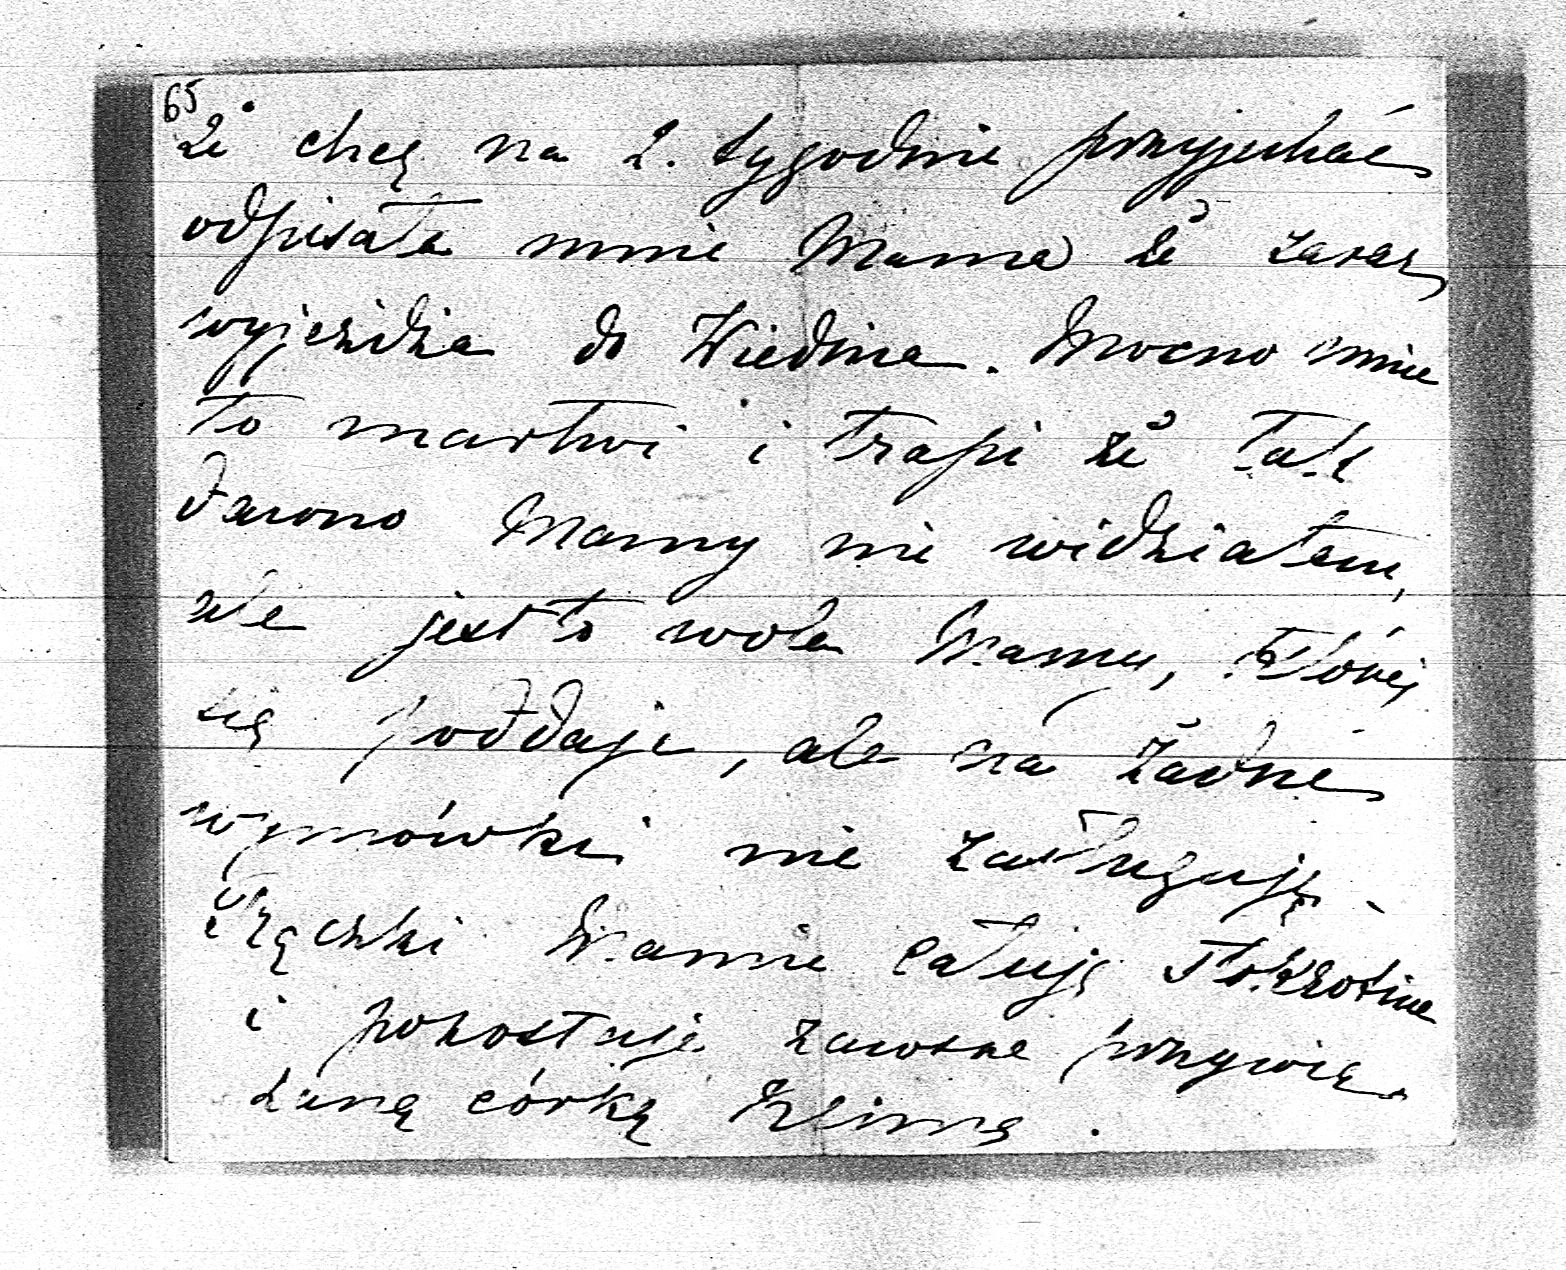 65
że chcę na 2. tygodnie przyjechać
odpisała mnie Mama że zaraz
wyjeżdża do Wiednia. Mocno mnie
to martwi i trapi że tak
dawno Mamy nie widziałam,
ale jest to wola Mamy, której
się poddaję, ale na żadne
wymówki nie zasługuję -
Rączki Mamie całuję stokrotnie
i pozostaję zawsze przywią-
zaną córką